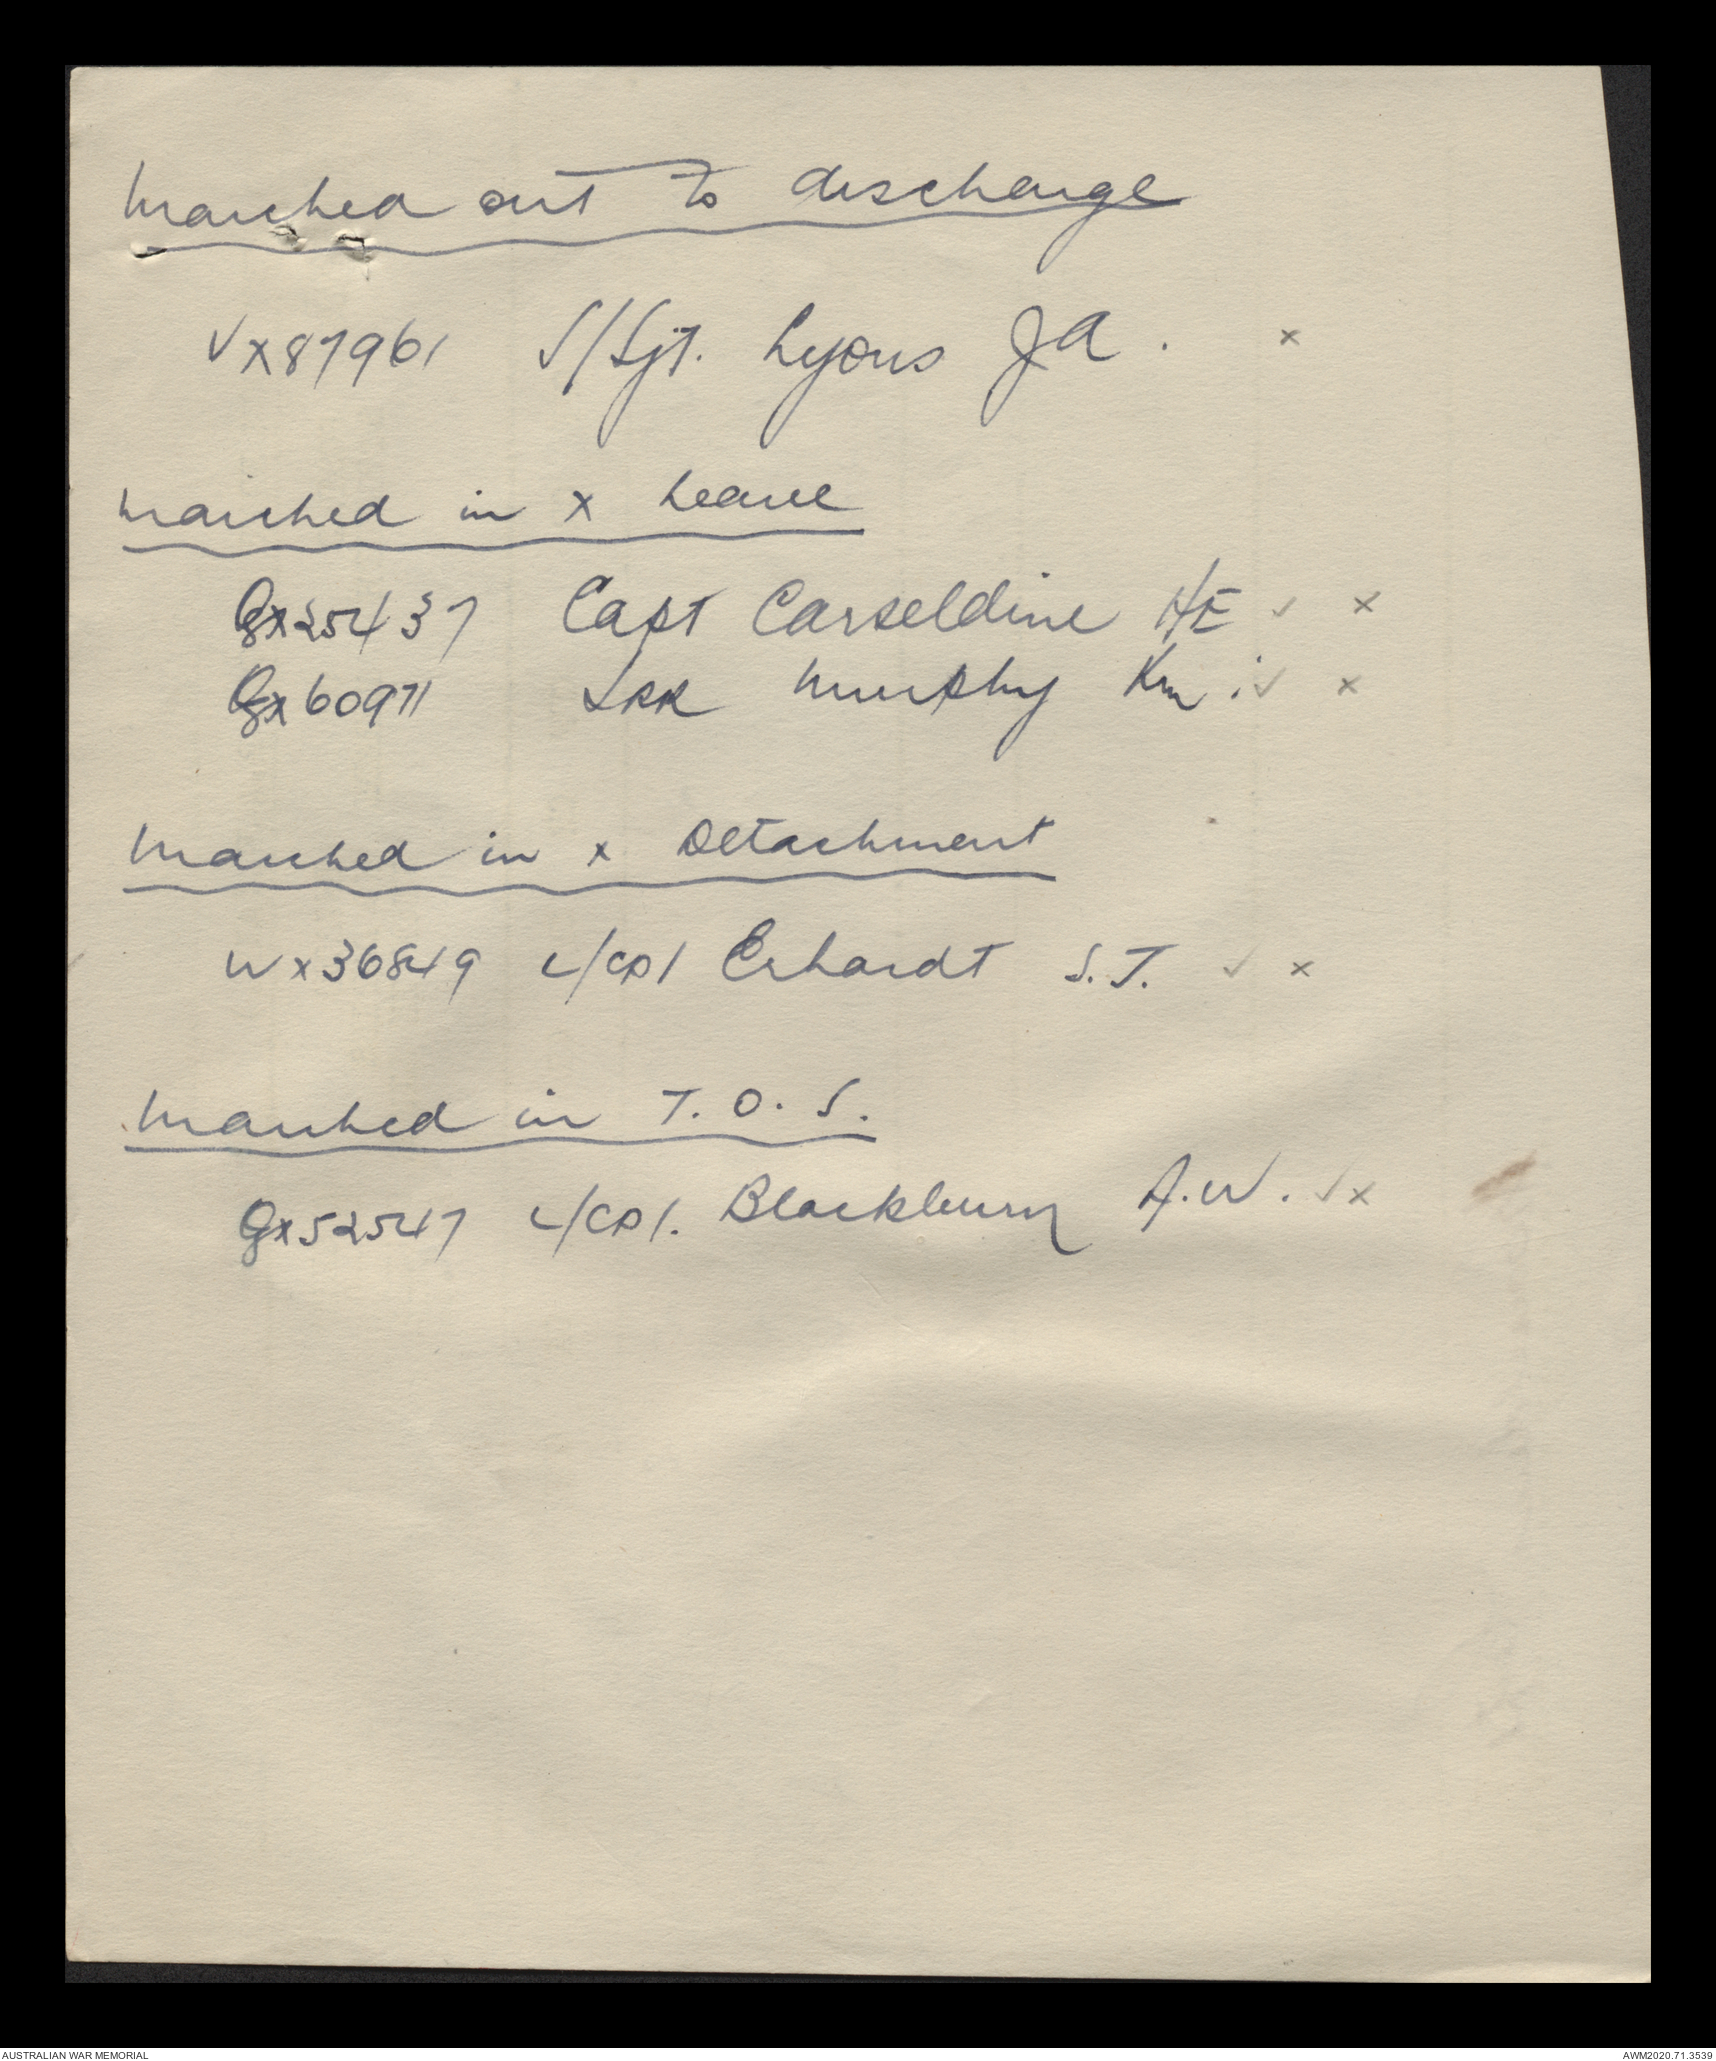 Marched out to discharge
VX87961 S/Sjt. Lyons JA. x
Marched in x Leave
QX25437 Capt Carseldine HE ✓ x
QX60971 Spr Murphy Km. ✓ x
Marched in x Detachment
WX36849 L/Cpl Erhardt S.T. ✓ x
Marched in T.O.S.
QX52547 L/Cpl. Blackburn A.W. ✓ x
AUSTRALIAN WAR MEMORIAL
AWM2020.71.3539